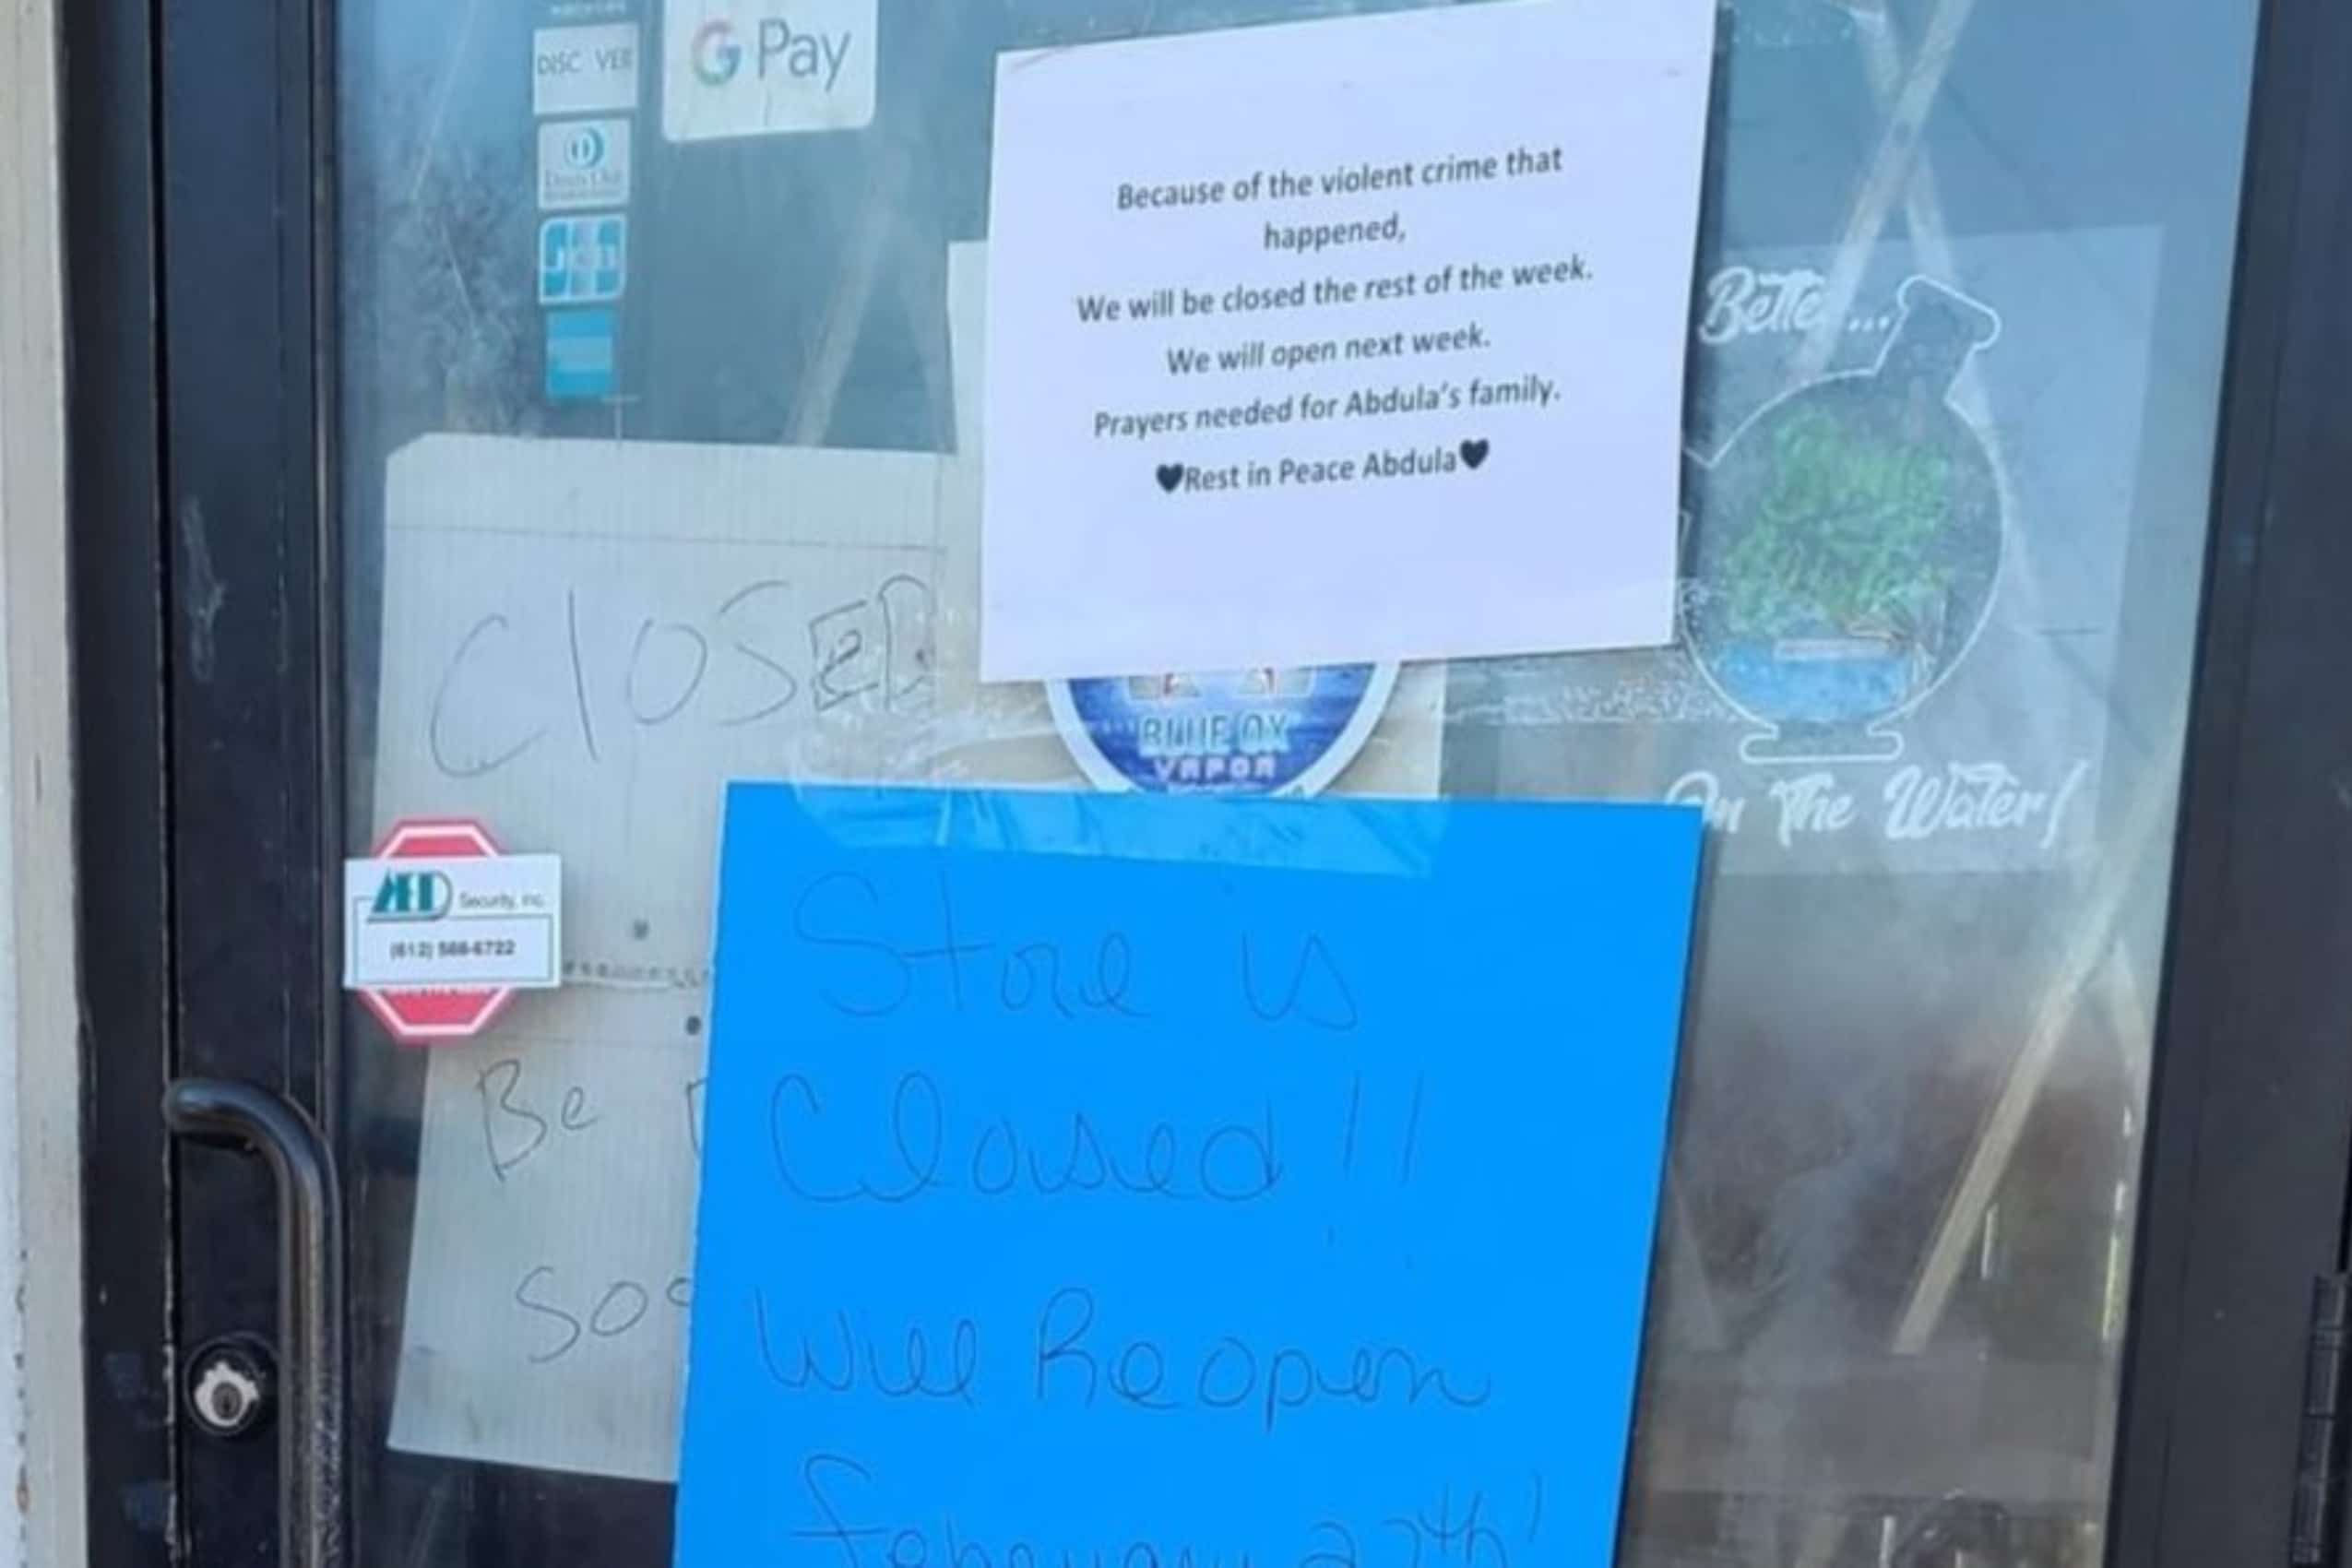 DISC VER
G Pay
Diners Club
JCB
Because of the violent crime that
happened,
We will be closed the rest of the week.
We will open next week.
Prayers needed for Abdula's family.
🖤Rest in Peace Abdula🖤
Better...
On The Water!
ClOSED
BLUE OX
VAPOR
AED Security, Inc.
(612) 588-6722
Be
Soo
Store is
Closed!!
Will Reopen
February 27th!